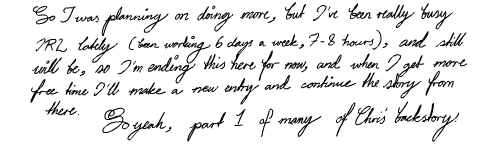 So I was planning on doing more, but I've been really busy
IRL lately (been working 6 days a week, 7-8 hours), and still
will be, so I'm ending this here for now, and when I get more
free time I'll make a new entry and continue the story from
there. So yeah, part 1 of many of Chris' backstory!